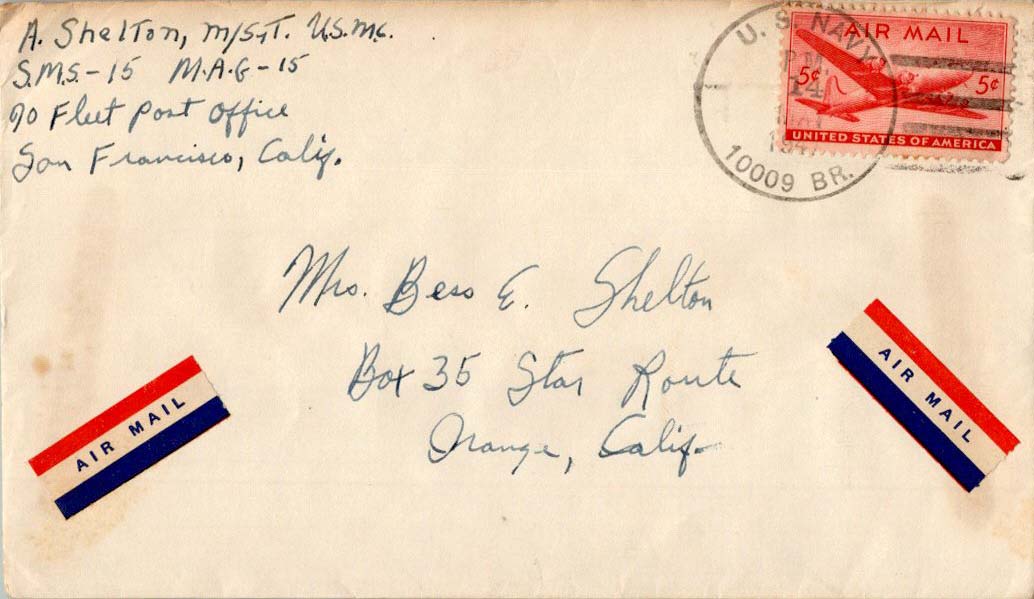 A. Shelton, M/SgT. U.S.M.C.
S.M.S-15 M.A.G-15
℅ Fleet Post Office
San Francisco, Calif.
U.S. NAVY
P.M.
14
194
10009 BR.
AIR MAIL
5¢ 5¢
UNITED STATES OF AMERICA
Mrs. Bess E. Shelton
Box 35 Star Route
Orange, Calif.
AIR MAIL
AIR MAIL